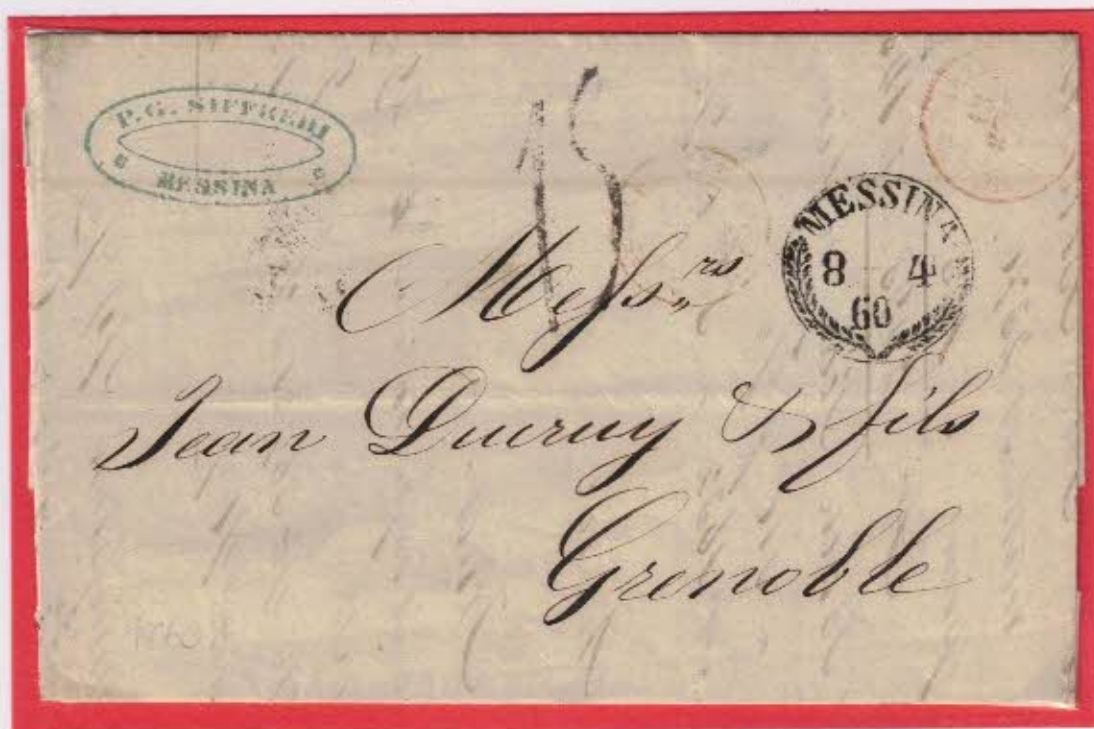 P. G. SIFFREDI
MESSINA
15
MESSINA
8 4
60
Mess.rs
Jean Ducruy & fils
Grenoble